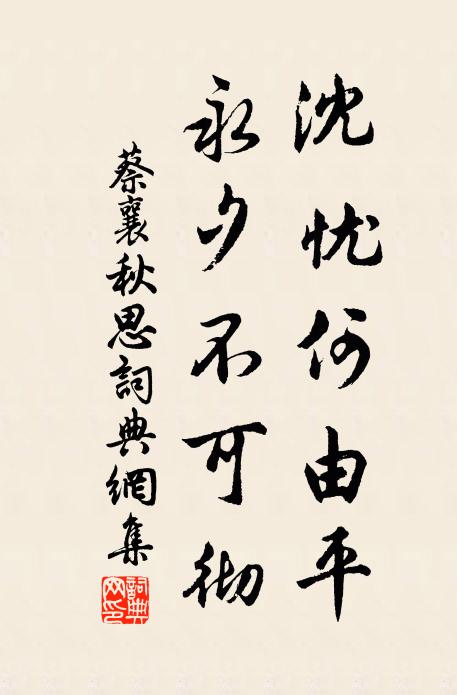 沈忧何由平
永夕不可彻
蔡襄秋思詞典網集
詞典網印